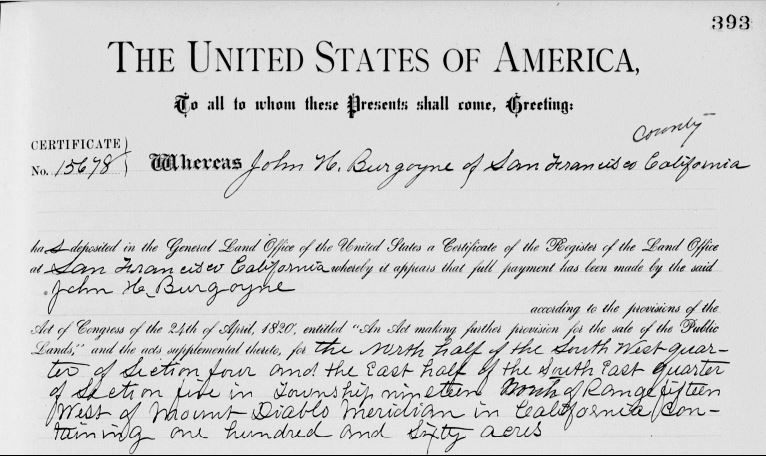 393
THE UNITED STATES OF AMERICA,
To all to whom these Presents shall come, Greeting:
County
CERTIFICATE
No. 15678
Whereas John H. Burgoyne of San Francisco California
has deposited in the General Land Office of the United States a Certificate of the Register of the Land Office
at San Francisco California whereby it appears that full payment has been made by the said
John H. Burgoyne
according to the provisions of the
Act of Congress of the 24th of April, 1820, entitled "An Act making further provision for the sale of the Public
Lands," and the acts supplemental thereto, for the North half of the South West quar-
ter of Section four and the East half of the South East quarter
of Section five in Township nineteen North of Range fifteen
West of Mount Diablo Meridian in California con-
taining one hundred and sixty acres